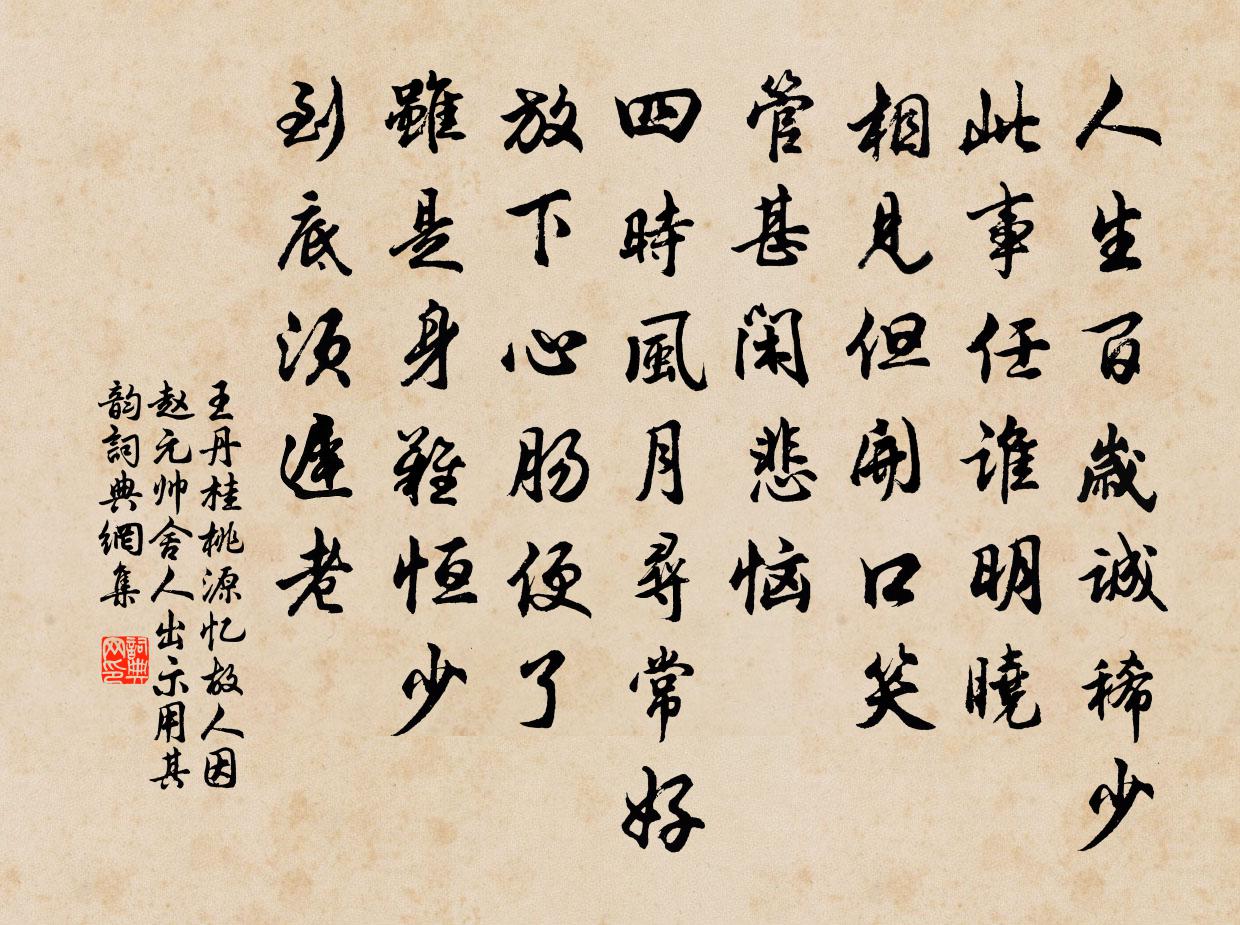 人生百歲誠稀少
此事任誰明曉
相見但開口笑
管甚閑悲惱
四時風月尋常好
放下心肠便了
雖是身難恒少
到底須遲老
王丹桂桃源忆故人因
赵元帅舍人出示用其
韵詞典網集
詞典网印